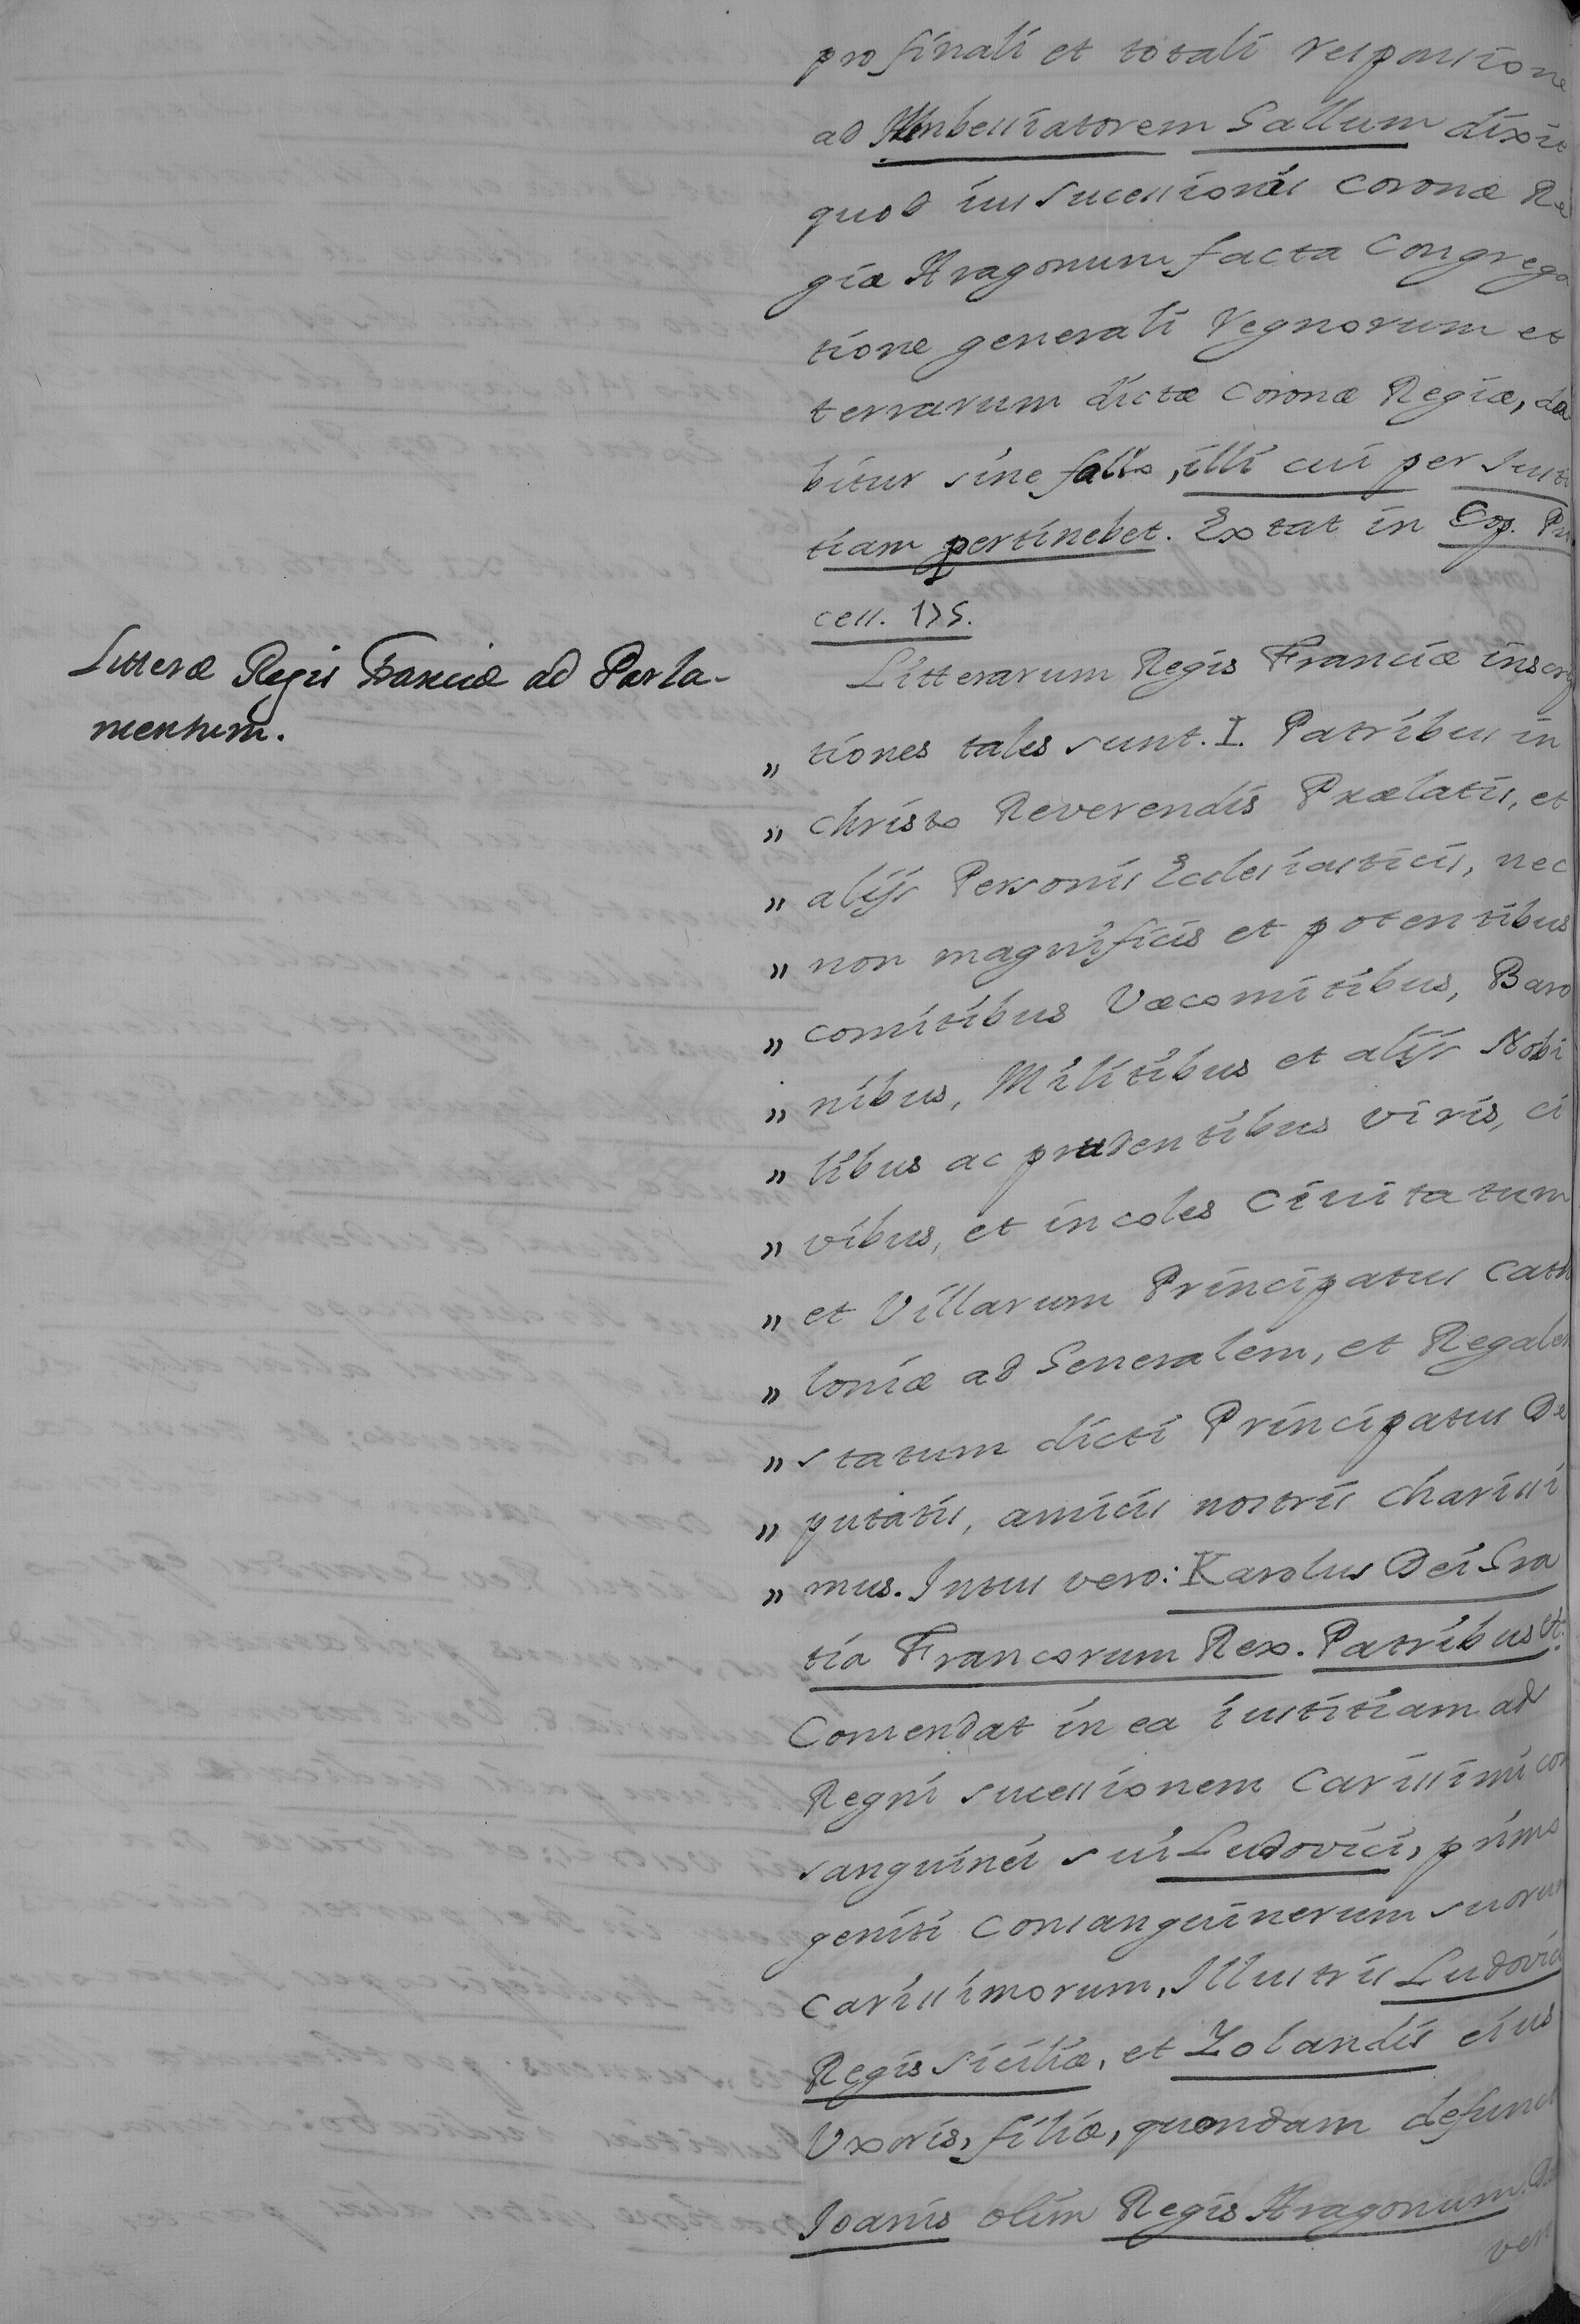 pro finali et totali responsione
ad Ambessiatorem Gallum dixit
quod ius sucessionis coronæ Re
giæ Aragonum facta Congrega
tione generali Regnorum et
terrarum dictæ Coronæ Regiæ, da
bitur sine fallo, illi cui per Iusti
tiam pertinebet. Extat in Cop. Pro
cess. 175.
Litteræ Regis Franciæ ad Parla-
mentum.
Litterarum Regis Franciæ inscrip
„ tiones tales sunt. I. Patribus in
„ Christo Reverendis Prælatis, et
„ alijs Personis Ecclesiasticis, nec
„ non magnificis et potentibus
„ comitibus Vicecomitibus, Baro
„ nibus, Militibus et alijs Nobi
„ libus ac prudentibus viris, ci
„ vibus, et incoles Civitatum
„ et Villarum Principatus Cath
„ loniæ ad Generalem, et Regalem
„ statum dicti Principatus De
„ putatis, amicis nostris charissi
„ mus. Intus vero: Karolus Dei Gra
tia Francorum Rex. Patribus etc.
Comendat in ea iustitiam ad
Regni sucessionem Carissimi con
sanguinei sui Ludovici, primo
geniti Consanguinerum suorum
carissimorum, Illustris Ludovici
Regis Siciliæ, et Yolandis eius
Uxoris, filiæ, quondam defunct
Ioanis olim Regis Aragonum.
ver